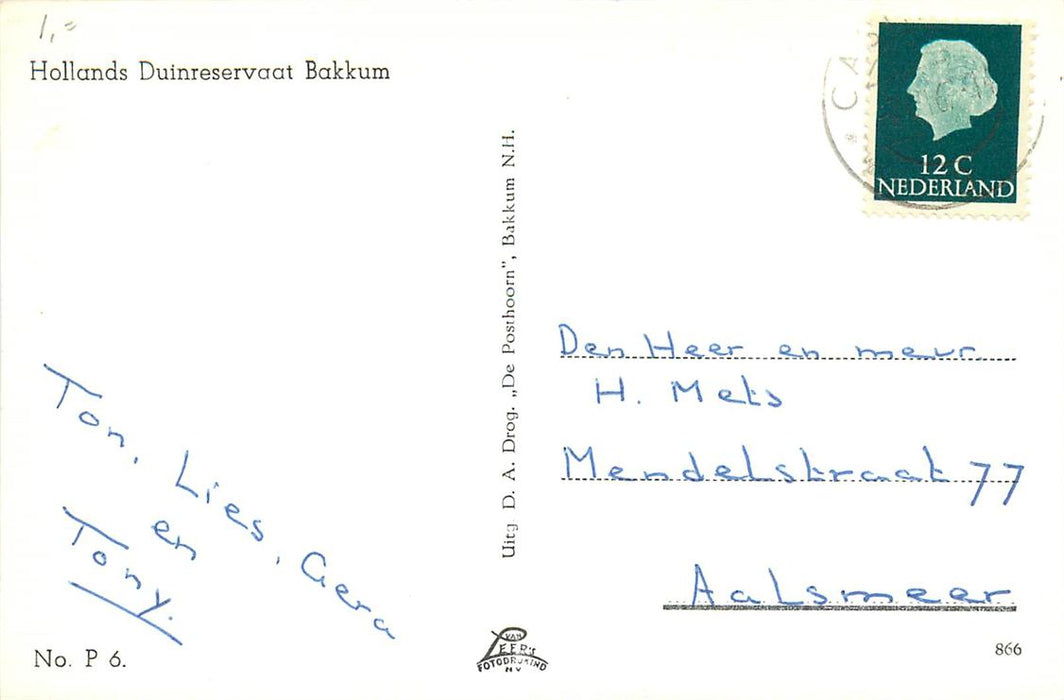 1,=
Hollands Duinreservaat Bakkum
12 C
NEDERLAND
Uitg D. A. Drog. „De Posthoorn”, Bakkum N.H.
Den Heer en mevr.
H. Mets
Mendelstraat 77
Aalsmeer
Ton, Lies, Gera
en
Tony.
No. P 6.
VAN
LEER's
FOTODRUKIND
NV
866